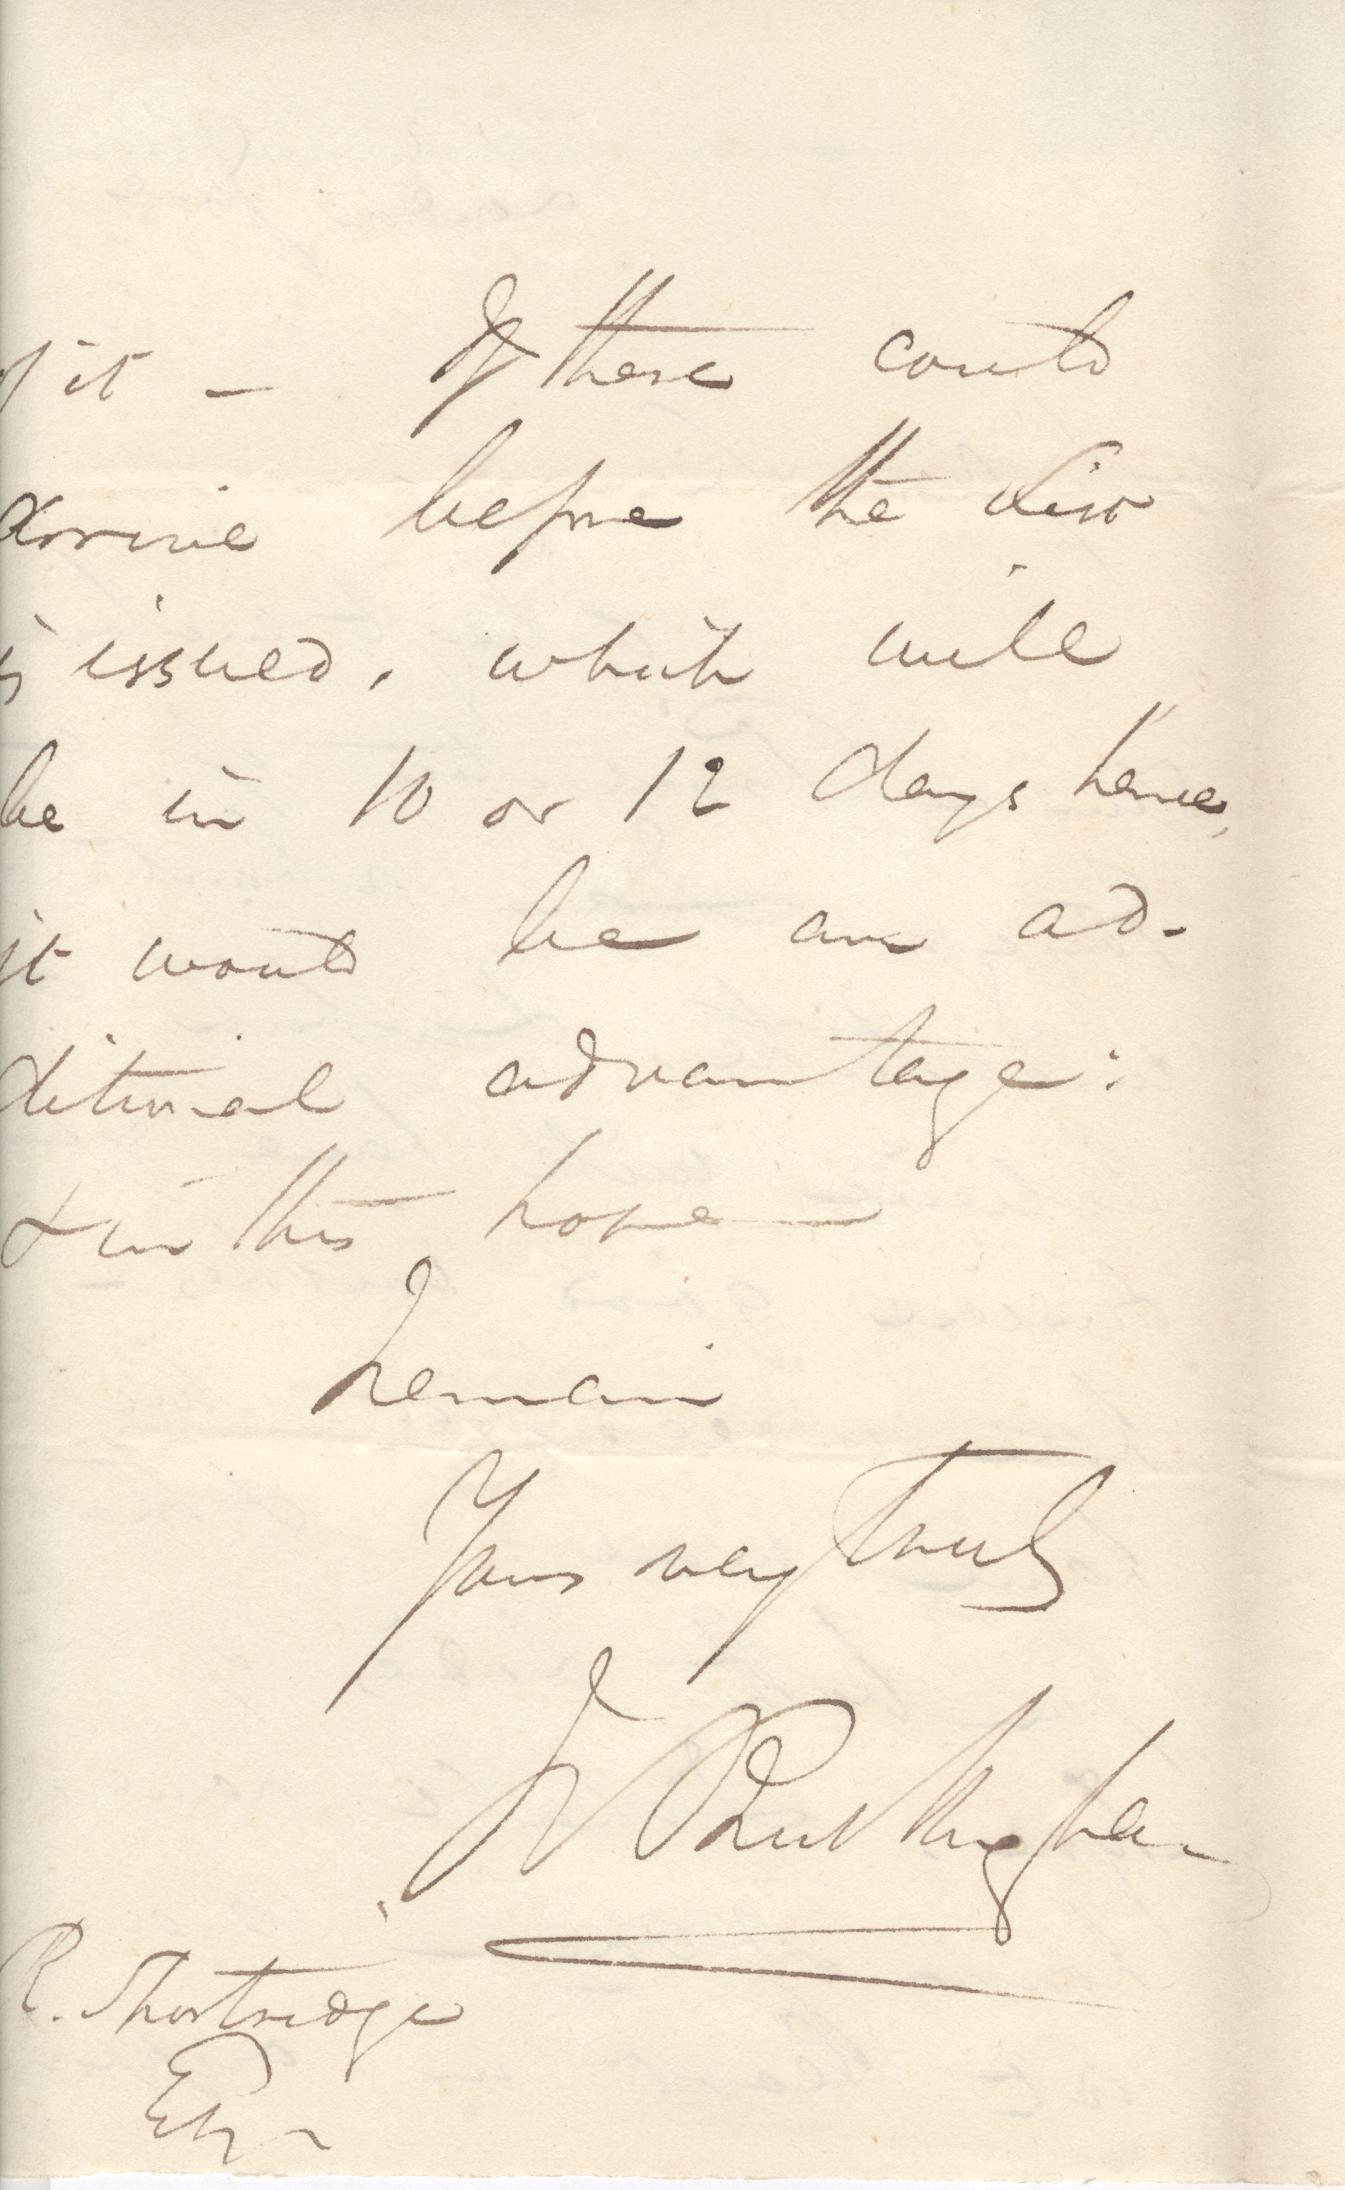 of it – If these could
arrive before the List
is issued, which will
be in 10 or 12 days hence,
it would be an ad-
ditional advantage:
& in this hope
I remain
Yours very truly
J S Buckingham
R. Shortridge
Esqr